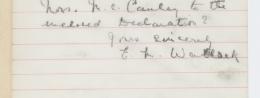 Mrs. M. C. Cauley to the
enclosed Declaration?
Yours sincerely
E. M.